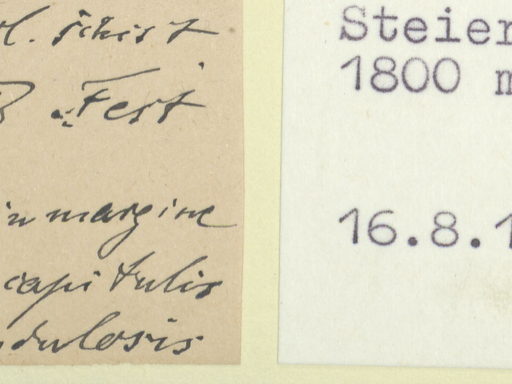 schist
Fest
in margine
capitulis
dulosis
Steier
1800 m
16.8.1